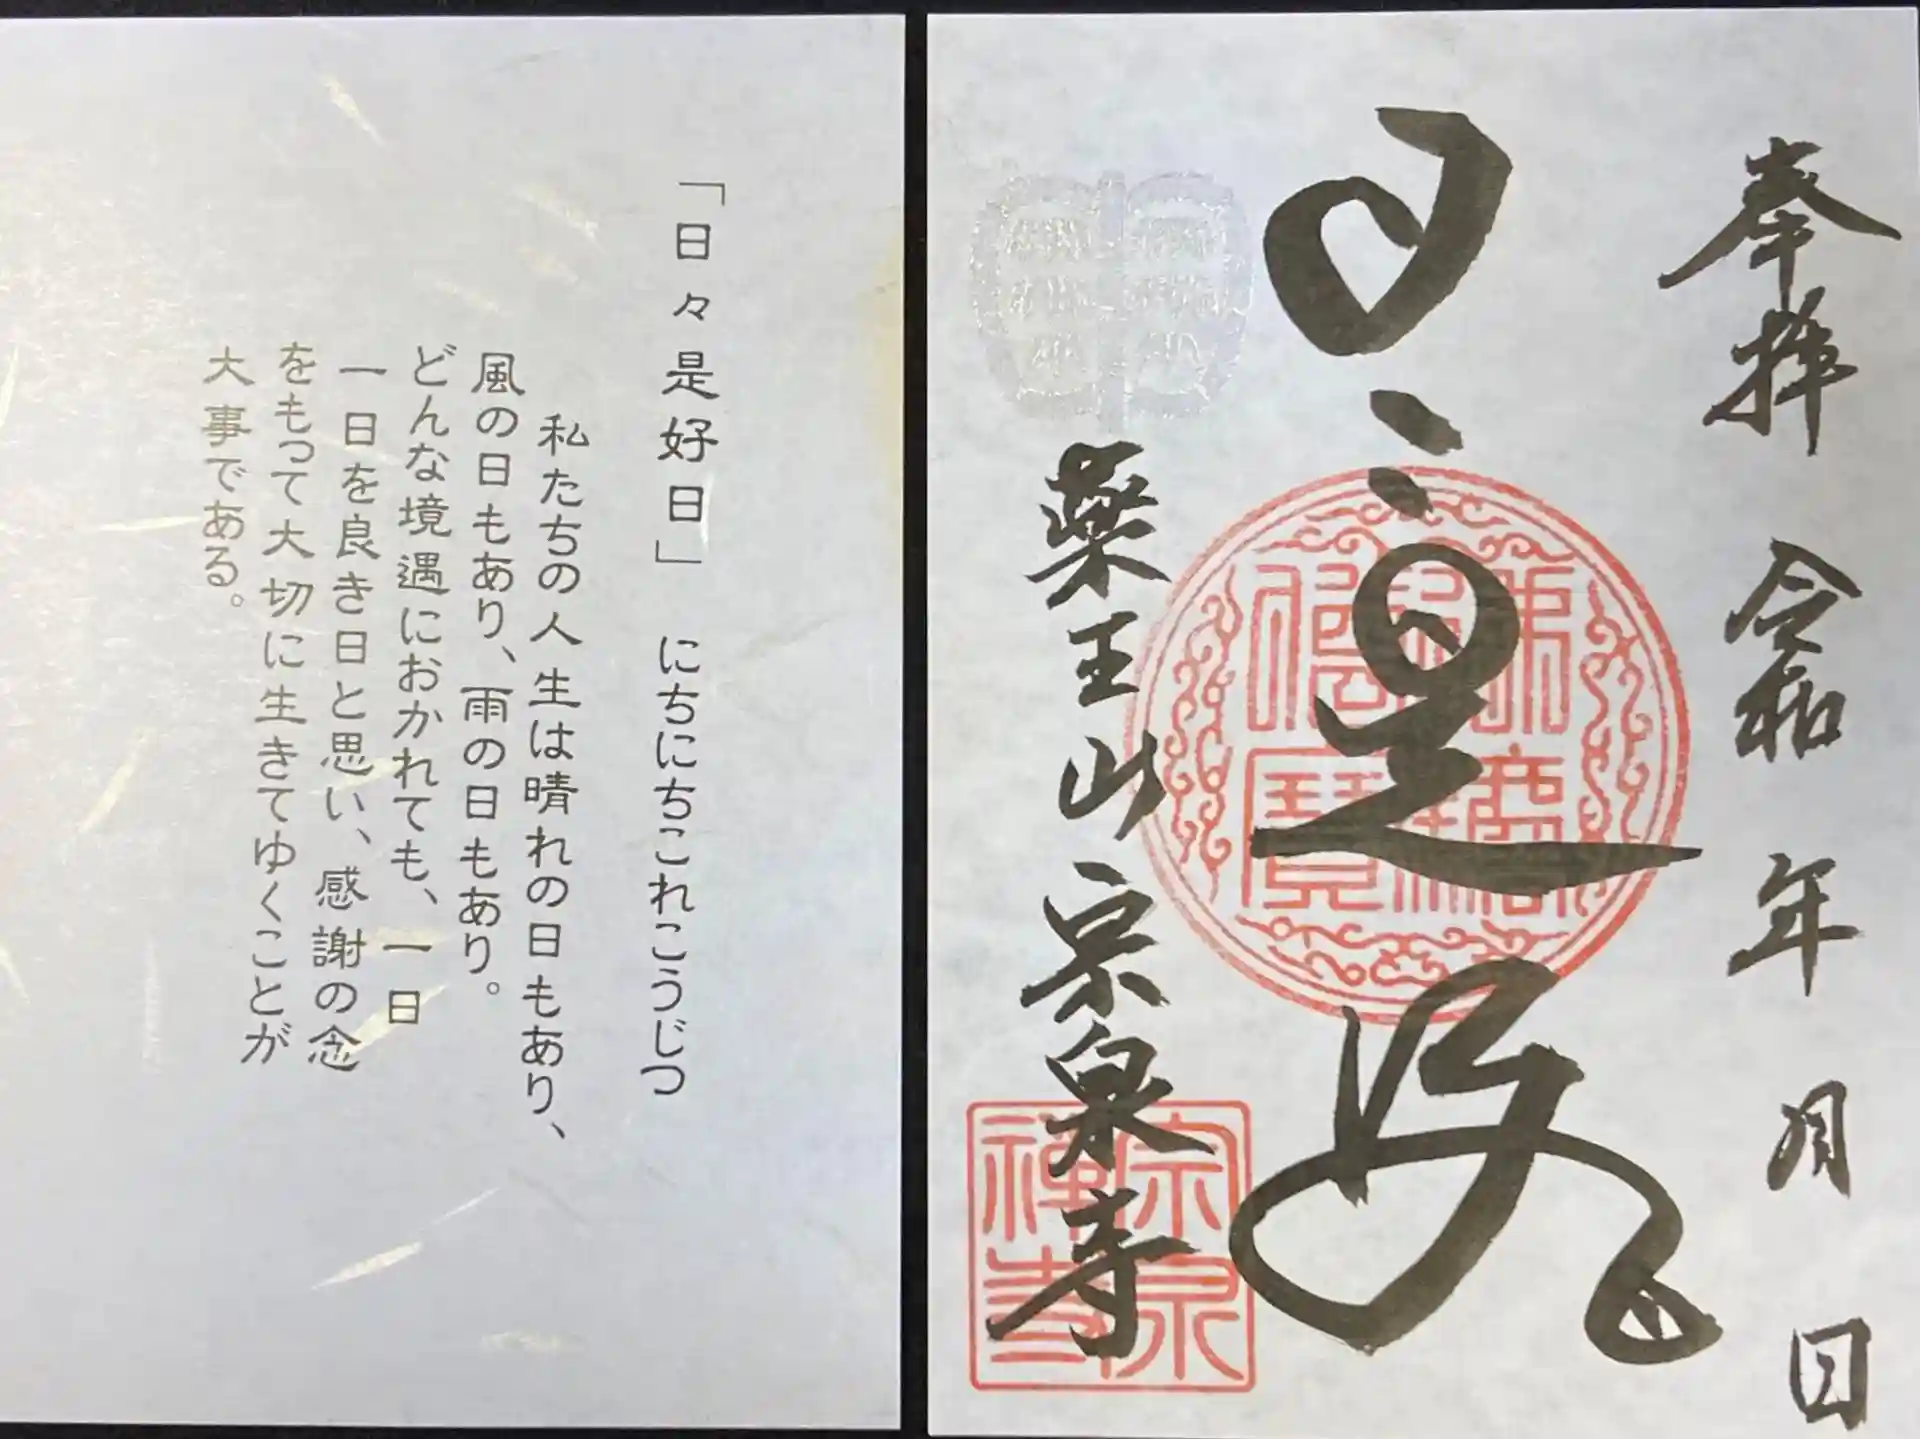 奉拝 令和 年 月 日
日々是好日
薬王山 宗泉寺
佛法僧寶
宗泉禅寺
「日々是好日」 にちにちこれこうじつ
私たちの人生は晴れの日もあり、
風の日もあり、雨の日もあり。
どんな境遇におかれても、一日
一日を良き日と思い、感謝の念
をもって大切に生きてゆくことが
大事である。